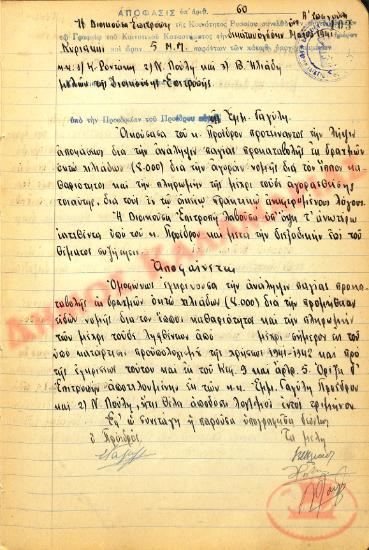 ΑΠΟΦΑΣΙΣ ὑπ' ἀριθ. 60
Ἡ Διοικοῦσα Ἐπιτροπὴ τῆς Κοινότητος
τῷ Γραφείῳ τοῦ Κοινοτικοῦ Καταστήματος 1941
Κυριακὴ καὶ ὥραν 5 Μ.Μ. παρόντων τῶν κάτωθι
κ.κ. 1) Κ. Ροντάκη 2) Ν. Πούλη καὶ 3) Β. Ἠλιάδη
μελῶν τῆς Διοικούσης Ἐπιτροπῆς.
ὑπὸ τὴν Προεδρείαν τοῦ Προέδρου Ἐμμ. Γαζύλη.
Ἀκούσασα τοῦ κ. Προέδρου προτείναντος τὴν λῆψιν
ἀποφάσεως διὰ τὴν ἀνάληψιν παγίας προκαταβολῆς ἐκ δραχμῶν
ὀκτὼ χιλιάδων (8.000) διὰ τὴν ἀγορὰν νομῆς διὰ τὸν ἵππον κα-
θαριότητος καὶ τὴν πληρωμὴν τῆς μέχρι τοῦδε ἀγορασθείσης
τοιαύτης, διὰ τοὺς ἐν τῷ πρακτικῷ ἀναφερομένους λόγους.
Ἡ Διοικοῦσα Ἐπιτροπὴ λαβοῦσα ὑπ' ὄψει τ' ἀνωτέρω
ἐκτεθέντα ὑπὸ τοῦ κ. Προέδρου καὶ μετὰ τὴν διεξοδικὴν ἐπὶ τοῦ
θέματος συζήτησιν
Ἀποφαίνεται
Ὁμοφώνως ἐγκρίνουσα τὴν ἀνάληψιν παγίας προκα-
ταβολῆς ἐκ δραχμῶν ὀκτὼ χιλιάδων (8.000) διὰ τὴν προμήθειαν
εἰδῶν νομῆς διὰ τὸν ἵππον καθαριότητος καὶ τὴν πληρωμὴν
τῶν μέχρι τοῦδε ληφθέντων ἀπὸ μέχρι σήμερον ἐκ τοῦ
ὑπὸ κατάρτισιν προϋπολογισμοῦ τῆς χρήσεως 1941-1942 καὶ πρὸ
τῆς ἐγκρίσεως τούτου καὶ ἐκ τοῦ Κεφ. 9 καὶ ἄρθρ. 5. Ὁρίζει δ'
Ἐπιτροπὴν ἀποτελουμένην ἐκ τῶν κ.κ. Ἐμμ. Γαζύλη Προέδρου
καὶ 2) Ν. Πούλη, ἥτις θέλει ἀποδώσει λογ/σμὸν ἐντὸς τριμήνου.
Ἐφ' ᾧ συνετάγη ἡ παροῦσα ὑπογραφεῖσα
ὁ Πρόεδρος Τὰ μέλη